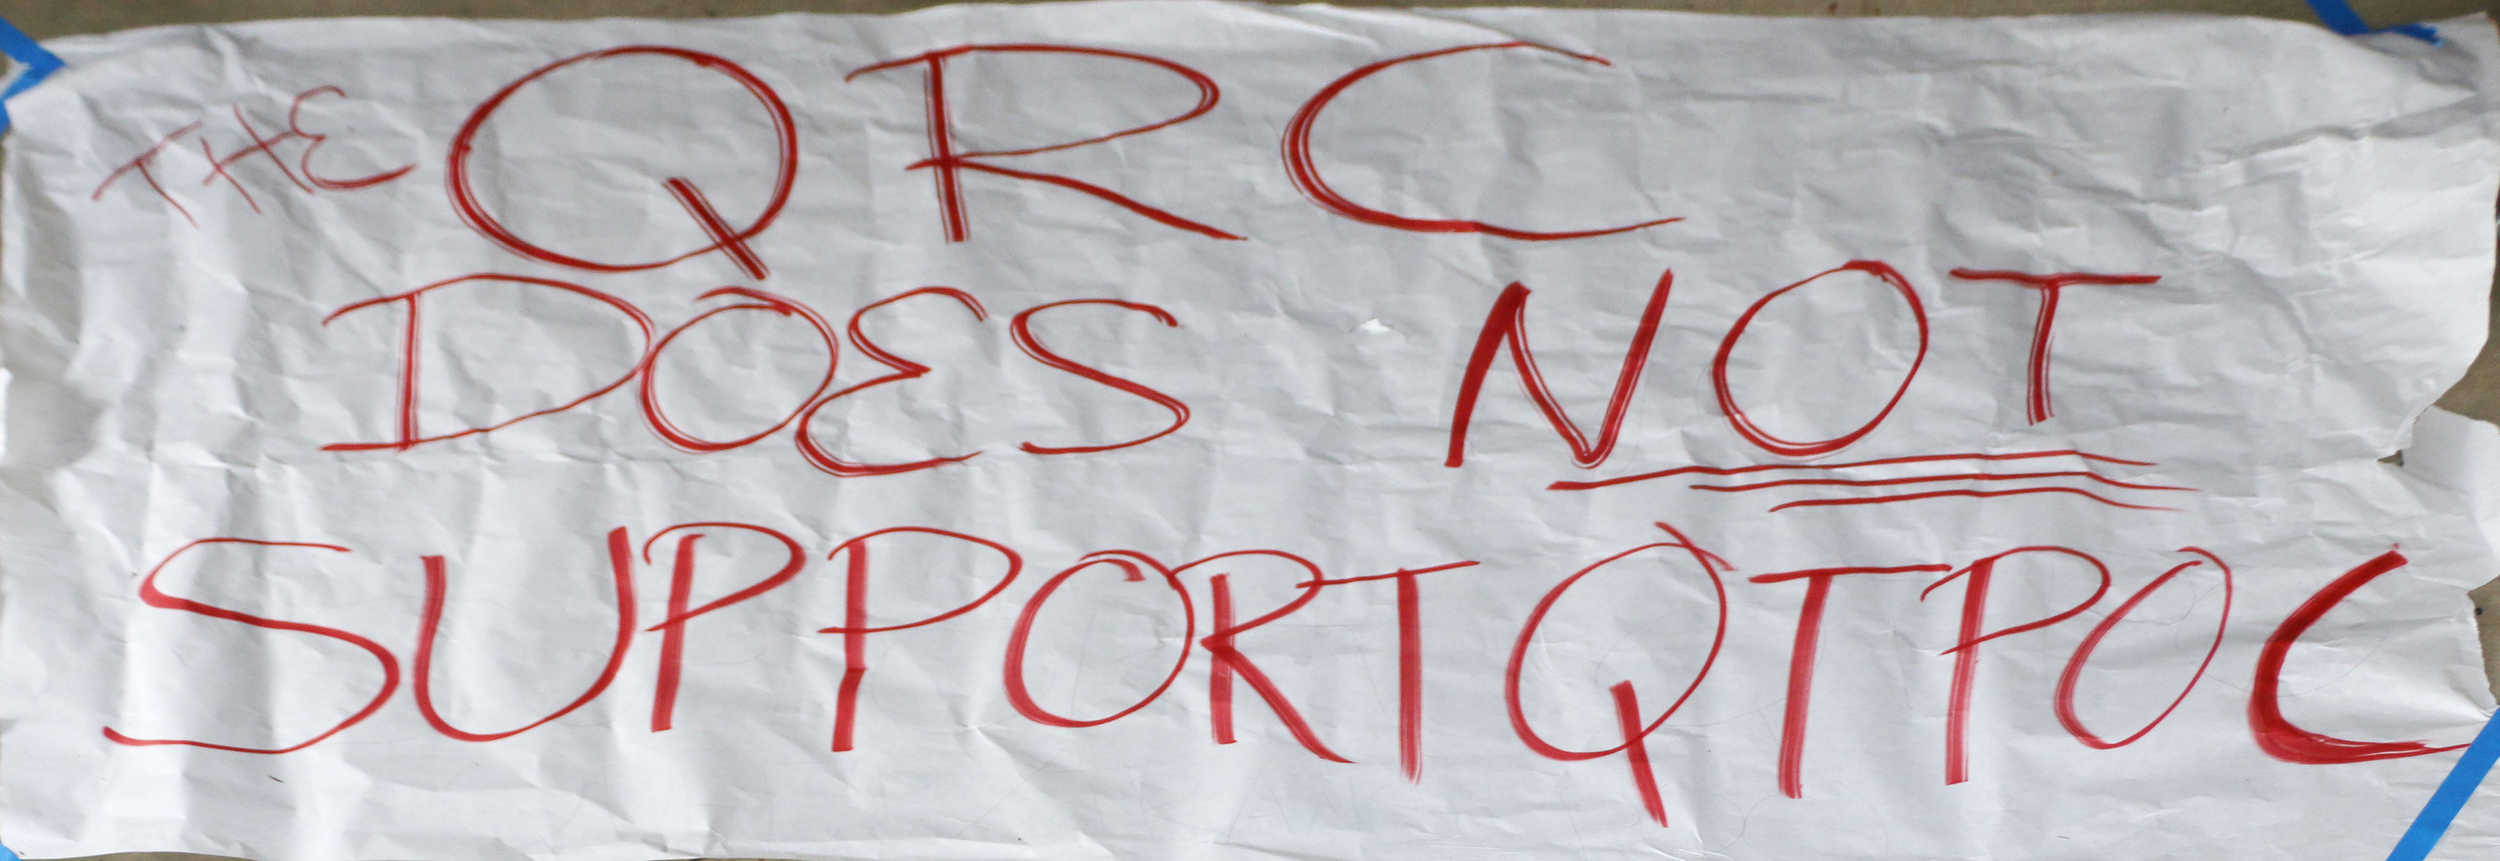 THE QRC
DOES NOT
SUPPORT QTPOC